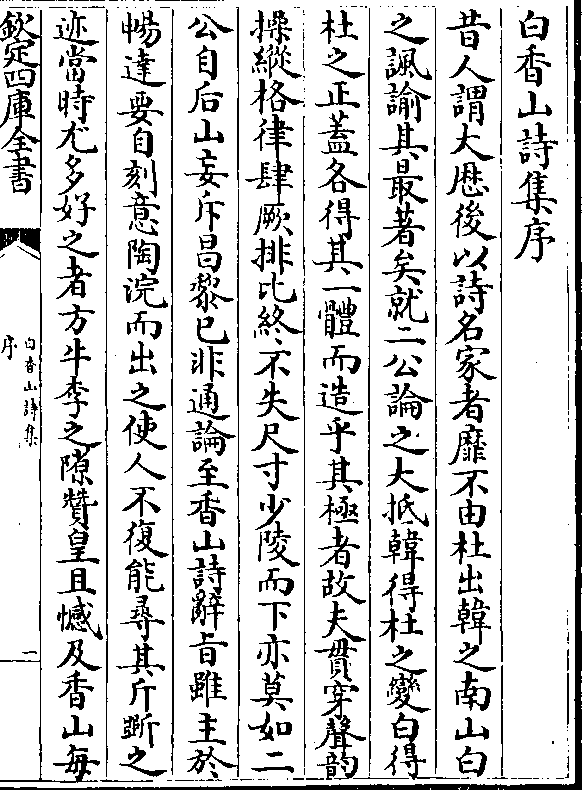 白香山詩集序
昔人謂大厯後以詩名家者靡不由杜出韓之南山白
之諷諭其最著矣就二公論之大抵韓得杜之變白得
杜之正蓋各得其一體而造乎其極者故夫貫穿聲韵
操縱格律肆厥排比終不失尺寸少陵而下亦莫如二
公自后山妄斥昌黎已非通論至香山詩辭旨雖主於
暢達要自刻意陶浣而出之使人不復能尋其斤斵之
迹當時尤多好之者方牛李之隙贊皇且憾及香山每
欽定四庫全書
白香山詩集
序
一